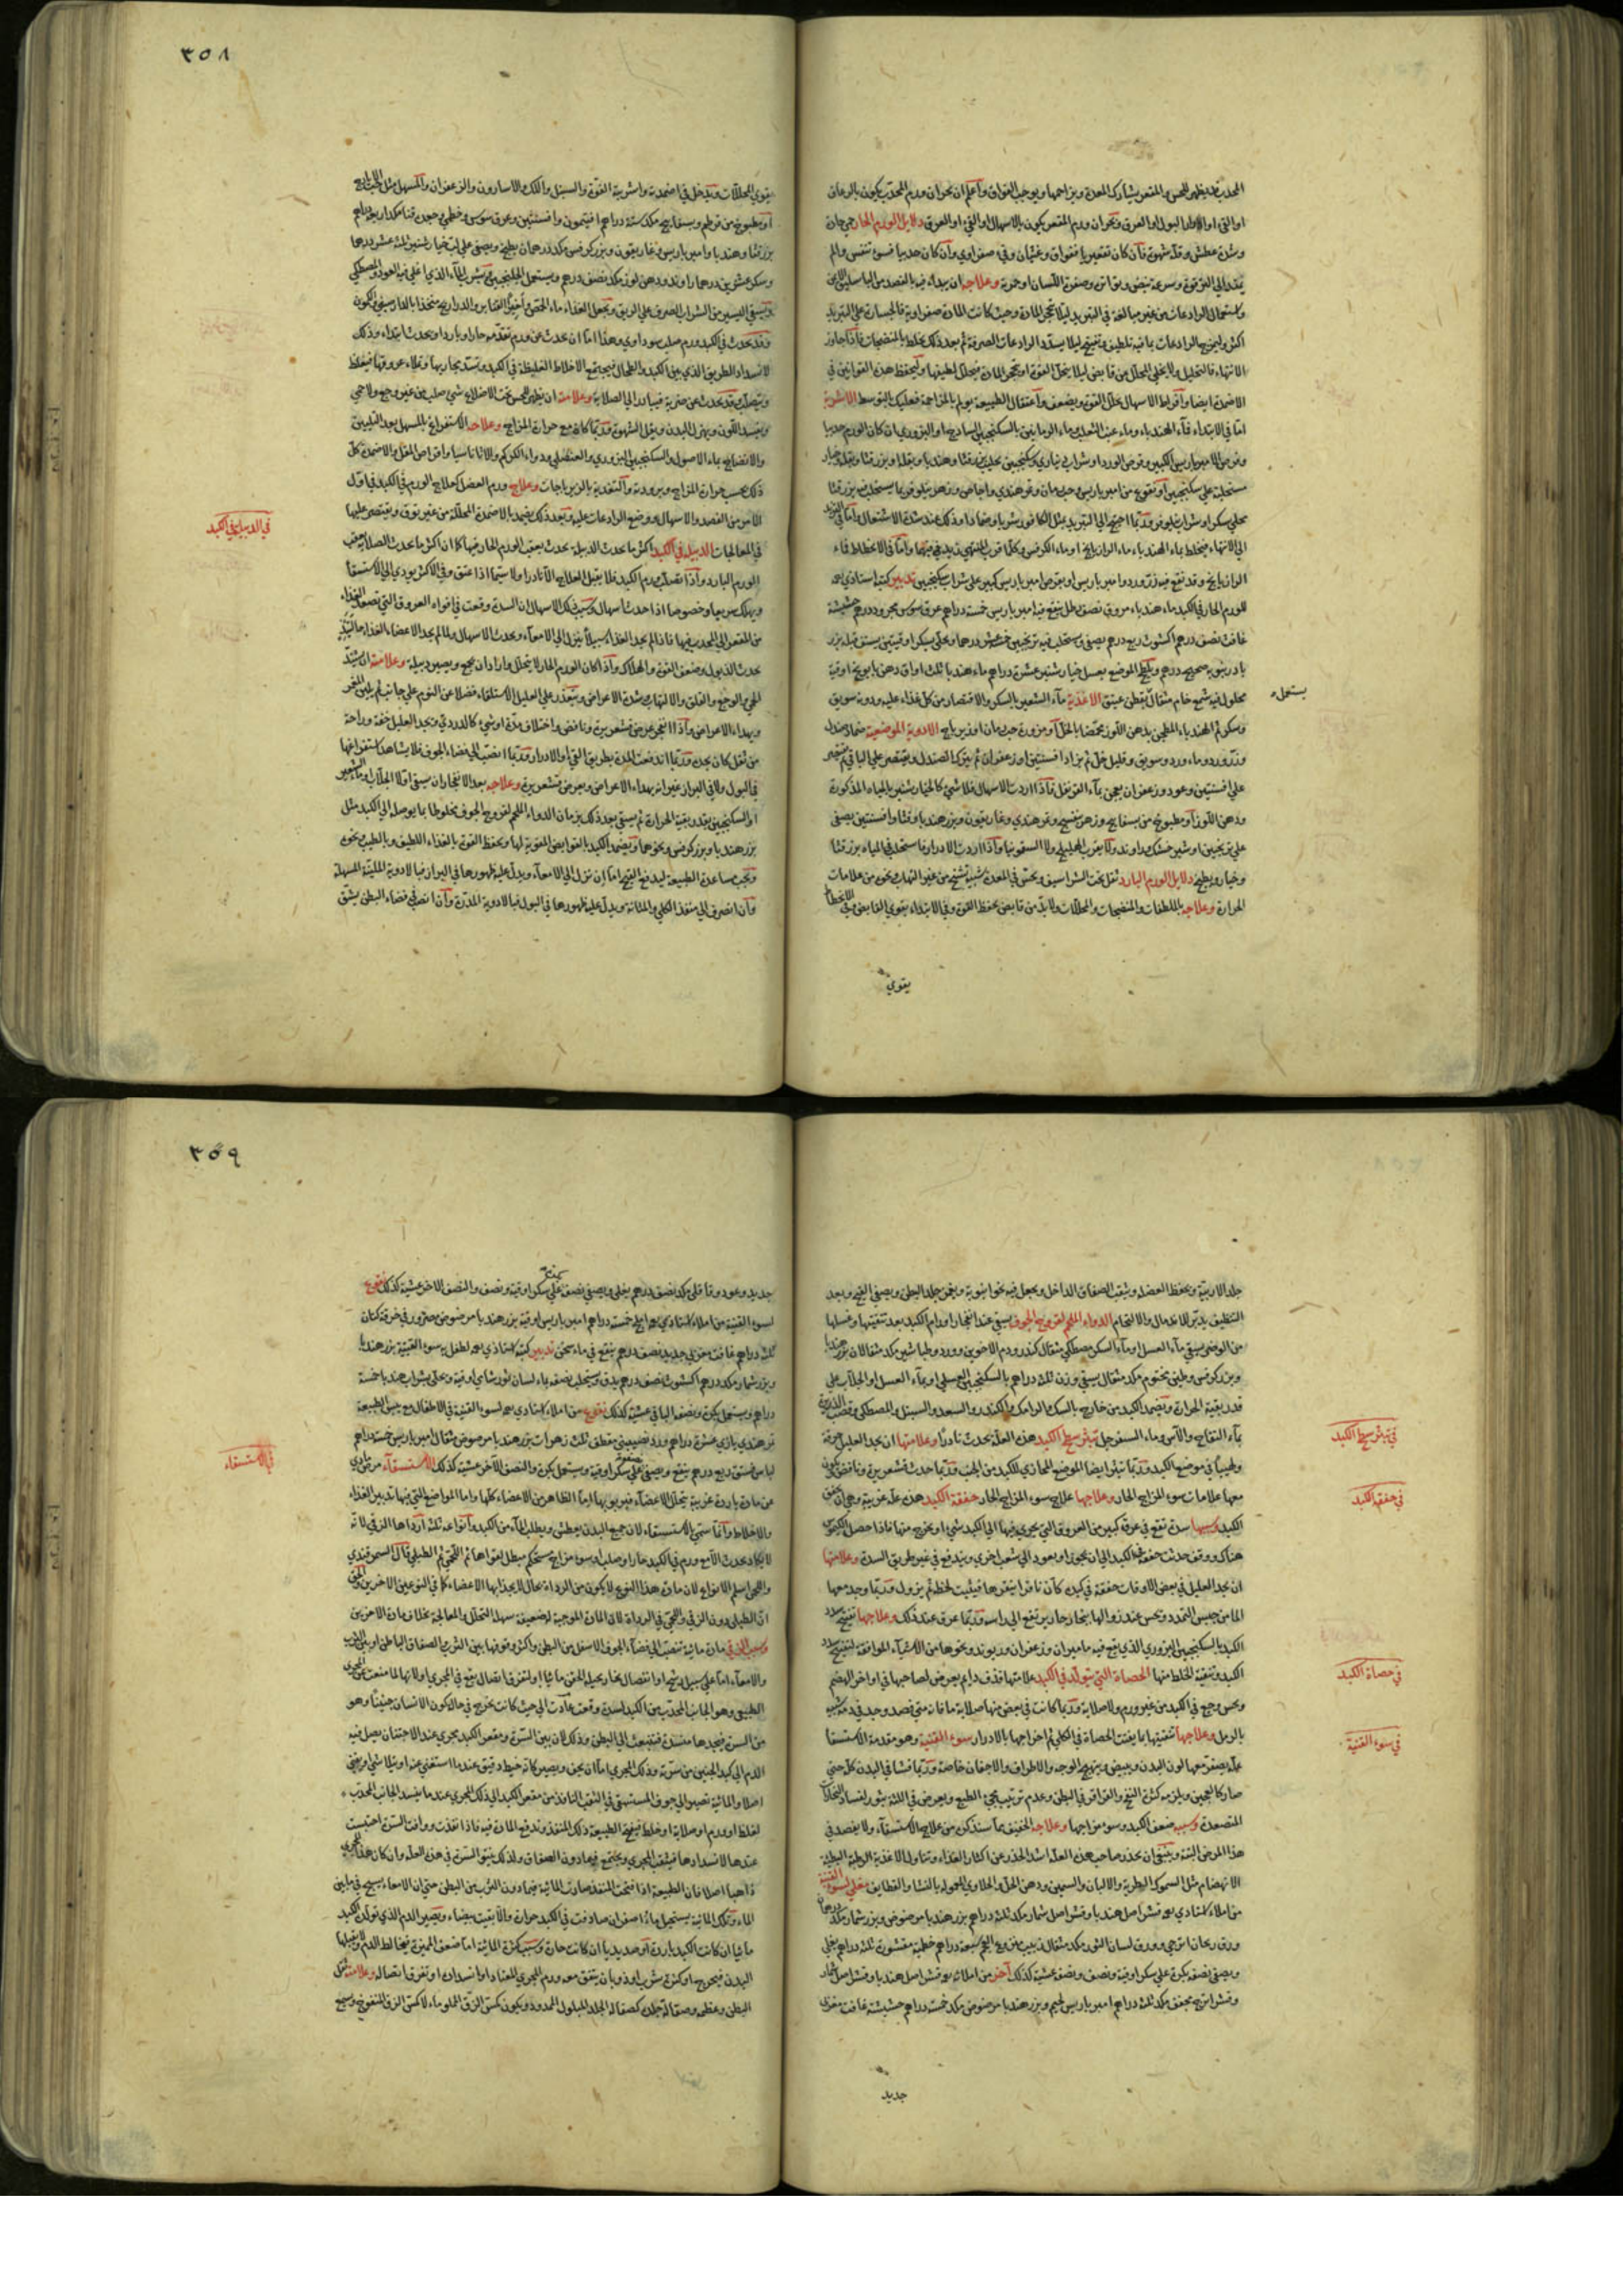 ٣٥٨
المحدب قد يظهر للحس والمقعر يشارك المعدة ويزاحمها ويوجب الفواق واعلم ان بحران ورم المحدب يكون بالرعاف
او القئ او بالادرار البول او العرق وبحران ورم المقعر يكون بالاسهال او القئ او العرق دلايل الورم الحار حمى حارة
وشدة عطش وقلة شهوة فان كان تقعيريا ففواق وغثيان وقئ صفراوي وان كان حدبيا فسوء تنفس والم
يمتد الى الترقوة وسرعة نبض وتواتر وصفرة اللسان او حمرة وعلاجه ان يبداء فيه بالفصد من الباسليق الايمن
واستعمال الرادعات من غير مبالغة في التبريد ليلا تحجر المادة وحيث كانت المادة صفراوية فالجسارة على التبريد
اكثر وليمزج بالرادعات ما فيه تلطيف وتفتيح ليلا يسدد الرادعات الصرفة ثم بعد ذلك يخلط بالمنضجات فاذا جاوز
الانتهاء فالتحليل ولا يخلى المحلل من قابض ليلا ينحل القوة او تحجر المادة فتحلل لطيفها وليحفظ هذه القوانين في
الاضمدة ايضا وافراط الاسهال يحلل القوة ويضعف واعتقال الطبيعة يولم بالمزاحمة فعليك بالتوسط الاشربة
اما في الابتداء فماء الهندباء وماء عنب الثعلب وماء الرمانين بالسكنجبين الساذج او البزوري ان كان الورم حدبيا
وقرص الامبرباريس الكبير وقرص الورد او شراب ديناري وسكنجبين بحليب بزر قثا وهندبا وبقلة او بزر قثا وبقلة وخيار
مستحلبة على سكنجبين او نقوع من امبرباريس وحب رمان وتمر هندي واجاص وزهر نيلوفر بما يستحلب فيه بزر قثا
محلى سكر او شراب نيلوفر وربما احتيج الى التبريد بمثل الكافور شربا وضمادا وذلك عند شدة الاشتعال واما في القرب
الى الانتهاء فيخلط بماء الهندباء ماء الرازيانج او ماء الكرفس وكلما قرب المنتهى زيد فيهما واما في الانحطاط فماء
الرازيانج وقد نقع فيه زر ورد وامبرباريس او بقرص امبرباريس كبير على شراب سكنجبين تدبير كتبه استاذي رحمه
للورم الحار في الكبد ماء هندباء مروق نصف رطل ينقع فيه امبرباريس خمسة دراهم عرق سوس مجرود درهم حشيشة
غافت نصف درهم اكشوث ربع درهم يصفى ويستحلب فيه ترنجبين خمسة عشر درهما ويحلى بسكر اوقيتين يستف قبله بزر
بادرنبويه صحيح درهم ويلطخ الموضع بعسل خيار شنبر عشرة دراهم ماء هندبا ثلث اواق دهن بابونج اوقية
يستعمله
محلول فيه شمع خام مثقال بقطن عتيق الاغذية ماء الشعير بالسكر والاقتصار من كل غذاء عليه ودونه سويق
وسكر ثم الهندباء المطجن بدهن اللوز محمضا بالخل او مزورة حب رمان او زيرباج الادوية الموضعية ضماد صندل
وزر ورد وماء ورد وسويق وقليل خل ثم يزاد افسنتين او زعفران ثم يترك الصندل ويقتصر على الباقي ثم يقتصر
على افسنتين وعود وزعفران يعجن بماء القرنفل فاذا اردت الاسهال فلا شئ كالخيار شنبر بالمياه المذكورة
ودهن اللوز او مطبوخ من بسفايج وزهر بنفسج وتمر هندي وغاريقون وبزر هندبا وقثا وافسنتين يصفى
على ترنجبين او شير خشك وراوند ولا يقرب الهليلج ولا السقمونيا واذا اردت الادرار فاستحلب في المياه بزر قثا
وخيار وبطيخ دلايل الورم البارد ثقل تحت الشراسيف ويحس في المعدة شبيه تشنج من غير التهاب ويخو من علامات
الحرارة وعلاجه بالملطفات والمنضجات والمحللات ولا بد من قابض يحفظ القوة وفي الابتداء يقوي القابض وفي الانحطاط
يقوي
يقوي المحللات ويدخل في اضمدته واشربته الفوة والسنبل واللك والاسارون والزعفران والمسهل مثل
او مطبوخ من قرطم وبسفايج مكد ستة دراهم افيتمون وافسنتين وعرق سوس وخطمى وجعدة قنا مكد اربعة دراهم
بزر قثا وهندبا وامبرباريس وغاريقون وبزر كرفس مكد درهمان يطبخ ويصفى على لب خيار شنبر ثلثة عشر درهما
وسكر عشرين درهما راوند ودهن لوز مكد نصف درهم ويستعمل الجلنجبين ثم يشرب الماء الذي اغلي فيه العود والمصطكى
ويسقى اليسير من الشراب الصرف على الريق ويجعل الغذاء ماء الحمص واخيرا القنابر والدراريج متخذا بالدارصيني والكمون
وقد يحدث في الكبد ورم صلب سوداوي وهذا اما ان يحدث عن ورم تقدمه حار او بارد او يحدث ابتداء وذلك
لانسداد الطريق الذي بين الكبد والطحال فيجتمع الاخلاط الغليظة في الكبد وتسد مجاريها وتملاء عروقها فيغلظ
ويتصلب وقد يحدث عن ضربة فيبادر الى الصلابة وعلامته ان يظهر للحس تحت الاضلاع شئ صلب من غير وجع ولا حمى
ويفسد اللون ويهزل البدن ويقل الشهوة وربما كان مع حرارة المزاج وعلاجه الاستفراغ بالمسهل بعد التليين
والانضاج بماء الاصول والسكنجبين البزوري والعنصلي ودواء الكركم والاثاناسيا واقراص المقل والاضمدة كل
ذلك بحسب حرارة المزاج وبرودته والتغذية بالزيرباجات وعلاج ورم العضل كعلاج الورم في الكبد في اول
الامر من الفصد والاسهال ووضع الرادعات عليه وبعد ذلك يضمد بالاضمدة المحللة من غير توق ويقتصر عليها
في الدبيلة في الكبد
في المعالجات الدبيلة في الكبد اكثر ما يحدث الدبيلة يحدث بعقب الورم الحار فيها كما ان اكثر ما يحدث الصلابة بعقب
الورم البارد واذا تصلب ورم الكبد فلا يقبل العلاج الا نادرا ولا سيما اذا عتق وفي الاكثر يودي الى الاستسقا
ويهلك سريعا وخصوصا اذا حدث اسهال وسبب ذلك الاسهال ان السدة وقعت في افواه العروق التي تصعد الغذاء
من المقعر الى المحدب فيها فاذا لم يجد الغذاء سبيلا ينزل الى الامعاء ويحدث الاسهال ولما لم يجد الاعضاء الغذاء
يحدث الذبول وضعف القوة والهلاك واذا كان الورم الحار لا يتحلل واراد ان يجمع ويصير دبيلة وعلامته ان يشتد
الحمى والوجع والقلق والالتهاب وشدة الاعراض ويتعذر على العليل الاستلقاء فضلا عن النوم على جانب ثم يلين المغمز
ويهداء الاعراض واذا انفجر عرض قشعريرة ونافض واختلاف مدة او شئ كالدردي ويجد العليل خفة وراحة
من ثقل كان يجده وربما اندفعت المدة بطريق القئ او الادرار وربما انصب الى فضاء الجوف فلا يشاهد استفراغها
في البول ولا في البراز غير انه يهداء الاعراض ويعرض قشعريرة وعلاجه بعد الانفجار ان يسقى اولا الجلاب او ماء الشعير
او السكنجبين بقدر بقية الحرارة ثم يسقى بعد ذلك بزمان الدواء الملحم لقروح الجوف مخلوطا بما يوصله الى الكبد مثل
بزر هندبا وبزر كرفس ونحوهما ويضمد الكبد بالقوابض المقوية لها ويحفظ القوة بالغذاء اللطيف وبالطيب ونحوه
ويجب مساعدة الطبيعة ليدفع القيح اما ان نزل الى الامعاء ويدل عليه ظهورها في البراز فبالادوية الملينة المسهلة
وان انصرف الى منفذ الكلى والمثانة ويدل عليه ظهورها في البول فبالادوية المدرة وان انصب في فضاء البطن يشق
٣٥٩
جلد الاربية ويحفظ العضلة ويثقب الصفاق الداخل ويجعل فيه نحو انبوبة ويغمز جلد البطن ويصفى القيح وبعد
التنظيف يدبر للاندمال والالتحام الدواء الملحم لقروح الجوف يسقى عند انفجار اورام الكبد بعد تنقيتها وغسلها
من الوضر يسقى ماء العسل او ماء السكر مصطكى مثقال كندر ودم الاخوين وورد وطباشير مكد مثقالان بزر هندبا
وبزر كرفس وطين مختوم مكد مثقال يسقى وزن ثلثة دراهم بالسكنجبين العسلي او بماء العسل او الجلاب على
قدر بقية الحرارة ويضمد الكبد من خارج بالسك والرامك والكندر والسعد والسنبل والمصطكى وقصب الذريرة
بماء التفاح والآس وماء السفرجل تبثر سطح الكبد هذه العلة يحدث نادرا وعلامتها ان يجد العليل حرقة
في تبثر سطح الكبد
ولهيبا في موضع الكبد وربما تبثر ايضا الموضع المحاذي للكبد من الجنب وربما حدث قشعريرة ونافض ويكون
معها علامات سوء المزاج الحار وعلاجها علاج سوء المزاج الحار خفقة الكبد هذه علة غريبة وهي ان يخفق
في خفقة الكبد
الكبد وسببها سدة تقع في عرق كبير من العروق التي يجري فيها الى الكبد شئ او يخرج منها فاذا حصل الكيموس
هناك ووقف حدثت خفقة في الكبد الى ان يجوز او يعود الى شعب اخرى ويندفع في غير طريق السدة وعلامتها
ان يجد العليل في بعض الاوقات خفقة في كبده كأن ناقرا ينقرها فيثبت لحظة ثم يزول وربما وجد معها
الما من جنس التمدد ويحس عند زوالها ببخار حار يرتفع الى راسه وربما عرق عند ذلك وعلاجها تفتيح سدد
الكبد بالسكنجبين البزوري الذي يقع فيه ماميران وزعفران وريوند ونحوها من الاشياء الموافقة لتفتيح سدد
الكبد وتنقية الخلط منها الحصاة التي يتولد في الكبد علامتها قذف دايم يعرض لصاحبها في اواخر الهضم
في حصاة الكبد
ويحس وجع في الكبد من غير ورم ولا صلابة وربما كانت في بعض منها صلابة ما فانه متى فصد وجد في دمه شبيه
بالرمل وعلاجها تنقيتها بما يفتت الحصاة في الكلى ثم اخراجها بالادرار سوء القنية وهو مقدمة الاستسقا
في سوء القنية
علة يصفر معها لون البدن ويبيض ويتهبج الوجه والاطراف والاجفان خاصة وربما فشا في البدن كله حتى
صار كالعجين ويلزمه كثرة النفخ والقراقر في البطن وعدم ترتيب مجئ الطبع ويعرض في اللثة بثور لفساد البخارات
المتصعدة وسببه ضعف الكبد وسوء مزاجها وعلاجه الخفيف مما سنذكره من علاج الاستسقاء ولا يفصد في
هذا المرض البتة وينبغي ان يحذر صاحب هذه العلة اشد الحذر عن اكثار الغذاء وتناول الاغذية الرطبة البطيئة
الانهضام مثل السموك الطرية والالبان والسمين ودهن الحل والحلاوى المعمولة بالنشا والقطايف مغلي لسوء القنية
من املاء استاذي رحمه قشر اصل هندبا وقشر اصل شمار مكد ثلثة دراهم بزر هندبا مرضوض وبزر شمار مكد درهمان
ورق ريحان اترجي وورق لسان الثور مكد مثقال زبيب منزوع العجم سبعة دراهم حنطة مقشورة ثلثة دراهم يغلى
ويصفى نصفه بكرة على سكر اوقية ونصف ونصفه عشية كذلك آخر من املائه رحمه قشر اصل هندبا وقشر اصل شمار
وقشر اترج مجفف مكد ثلثة دراهم امبرباريس لحيم وبزر هندبا مرضوض مكد خمسة دراهم حشيشة غافت مغربي
جديد
جديد وعود قاقلي مكد نصف درهم يغلى ويصفى نصفه على سكر اوقية ونصف والنصف الاخر عشية كذلك نقوع
لسوء القنية من املاء استاذي رحمه ايضا خمسة دراهم امبرباريس اوقية بزر هندبا مرضوض مصرور في خرقة كتان
ثلثة دراهم غافت مغربي جديد نصف درهم ينقع في ماء سخن تدبير كتبه استاذي رحمه لطفل به سوء القنية بزر هندبا
وبزر شمار مكد درهم اكشوث نصف درهم يدق ويستحلب نصفه بماء لسان ثور شامي اوقية ويحلى بشراب هندبا خمسة
دراهم ويستعمل بكرة ونصفه الباقي عشية كذلك نقوع من املاء استاذي رحمه لسوء القنية في الاطفال مع يبس الطبيعة
تمر هندي يازي عشرة دراهم ورد نصيبيني مقطف ثلث زهرات بزر هندبا مرضوض مثقال امبرباريس خمسة دراهم
لباس فستق ربع درهم ينقع ويصفى نصفه على سكر اوقية ويستعمل بكرة والنصف الآخر عشية كذلك الاستسقاء مرض مادي
في الاستسقاء
عن مادة باردة غريبة يتخلل الاعضاء فيربو بها اما الظاهر من الاعضاء كلها واما المواضع التي فيها تدبير الغذاء
والاخلاط وانما سمي الاستسقاء لان جميع البدن يعطش ويطلب الماء من الكبد وانواعه ثلثة ارداها الزقي لانه
لا يكاد يحدث الا مع ورم في الكبد حارا او صلب او سوء مزاج مستحكم مبطل لقواها ثم اللحمي ثم الطبلي قال السمرقندي
واللحمي اسلم الانواع لان مادة هذا النوع لا يكون من الرداة بحال لا يجذبها الاعضاء كما في النوعين الاخرين والحق
ان الطبلي دون الزقي واللحمي في الرداة لان المادة الموجبة له ضعيفة سهلة التحلل والمعالجة بخلاف مادة الاخرين
وسبب الزقي مادة مائية تنصب الى فضاء الجوف الاسفل من البطن واكثر وقوفها بين الثرب والصفاق الباطن او بين الثرب
والامعاء اما على سبيل رشح او انفصال بخار يحيله الحقن مائيا او لتفرق اتصال يقع في المجرى او لانها لما منعت عن المجرى
الطبيعي وهو الجانب المحدب من الكبد لسدة وقعت عادت الى حيث كانت يخرج في حال كون الانسان جنينا وهو
من السرة فيجدها منسدة فتنبعث الى البطن وذلك لان بين السرة ومقعر الكبد مجرى عند الاجتنان يصل فيه
الدم الى كبد الجنين من سرته وذلك المجرى اما ان يجف ويصير كانه خيط دقيق عند ما استغنى عنه او يتلاشى او يفنى
اصلا والمائية تصير الى جوف المستسقي في الثقب النافذ من مقعر الكبد الى ذلك المجرى عند ما ينسد الجانب المحدب
لغلظ او ورم او صلابة او خلط فيفتح الطبيعة ذلك المنفذ وتدفع المادة فيه فاذا نفذت ووافت السرة احتبست
عندها لانسدادها فيثقب المجرى ويجتمع فيما دون الصفاق ولذلك ينتو السرة في هذه العلة وان كان هذا المجرى
ذاهبا اصلا فان الطبيعة اذا فتحت المنفذ صارت المائية فيما دون الثرب من البطن حتى ان الامعاء يسبح فيما بين
الماء وتلك المائية يستحيل ماء اصفر ان صادفت في الكبد حرارة والا بقيت بيضاء ويصير الدم الذي تولده الكبد
مائيا ان كانت الكبد باردة او صديديا ان كانت حارة وسبب كثرة المائية اما ضعف المميزة فيخالط الدم ولا يقبلها
البدن فيحوج او كثرة شرب او ذوبان يتفق معه ورم المجرى المعتاد او انسداده او تفرق اتصاله وعلامته ثقل
البطن وعظمه وصقالة جلده كصقالة الجلد المبلول الممدود ويكون كحس الزق المملوء ماء لا كحس الزق المنفوخ ويسمع